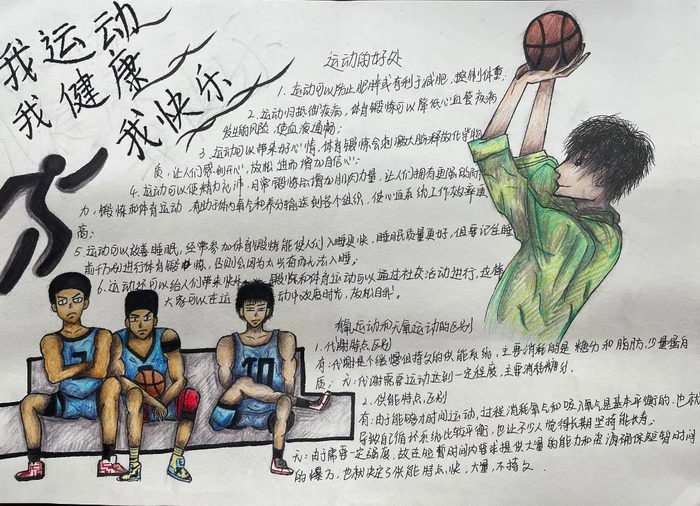 我运动
我健康
我快乐
运动的好处
1.运动可以防止肥胖或有利于减肥,控制体重;
2.运动归抵御疾病,体育锻炼可以降低心血管疾病
发生的风险,使血液通畅;
3.运动可以带来好心情,体育锻炼会刺激大脑释放化学物
质,让人们感到开心,放松,进而增加自信心;
4.运动可以使精力充沛,日常锻炼后增加肌肉力量,让人们拥有更强的耐
力,锻炼和体育运动,有助于将氧气和养分输送到各个组织,使心血系统工作效率提
高;
5.运动可以改善睡眠,经常参加体育锻炼能使人们入睡更快,睡眠质量更好,但要记住睡
前不可进行体育锻炼,否则会因为太兴奋而无法入睡;
6.运动还可以给人们带来快乐 锻炼和体育运动可以通过社交活动进行,这给
大家可以在运 动中欢度时光,放松自我。
有氧运动和无氧运动的区别
1.代谢特点区别
有:代谢是个缓慢但持久的供能系统,主要消耗的是糖分和脂肪,少量蛋白
质;无:代谢需要运动达到一定程度,主要消耗糖分.
2.供能特点区别
有:由于能够长时间运动,过程消耗氧气和吸入氧气是基本平衡的,也就
导致自循环系统比较平衡,也让不少人觉得长期坚持能长寿;
无:由于需要一定强度,故在短暂时间内要求提供大量的能力和 确保短暂时间
的爆发,也就决定了供能特点,快,大量,不持久.
7
10